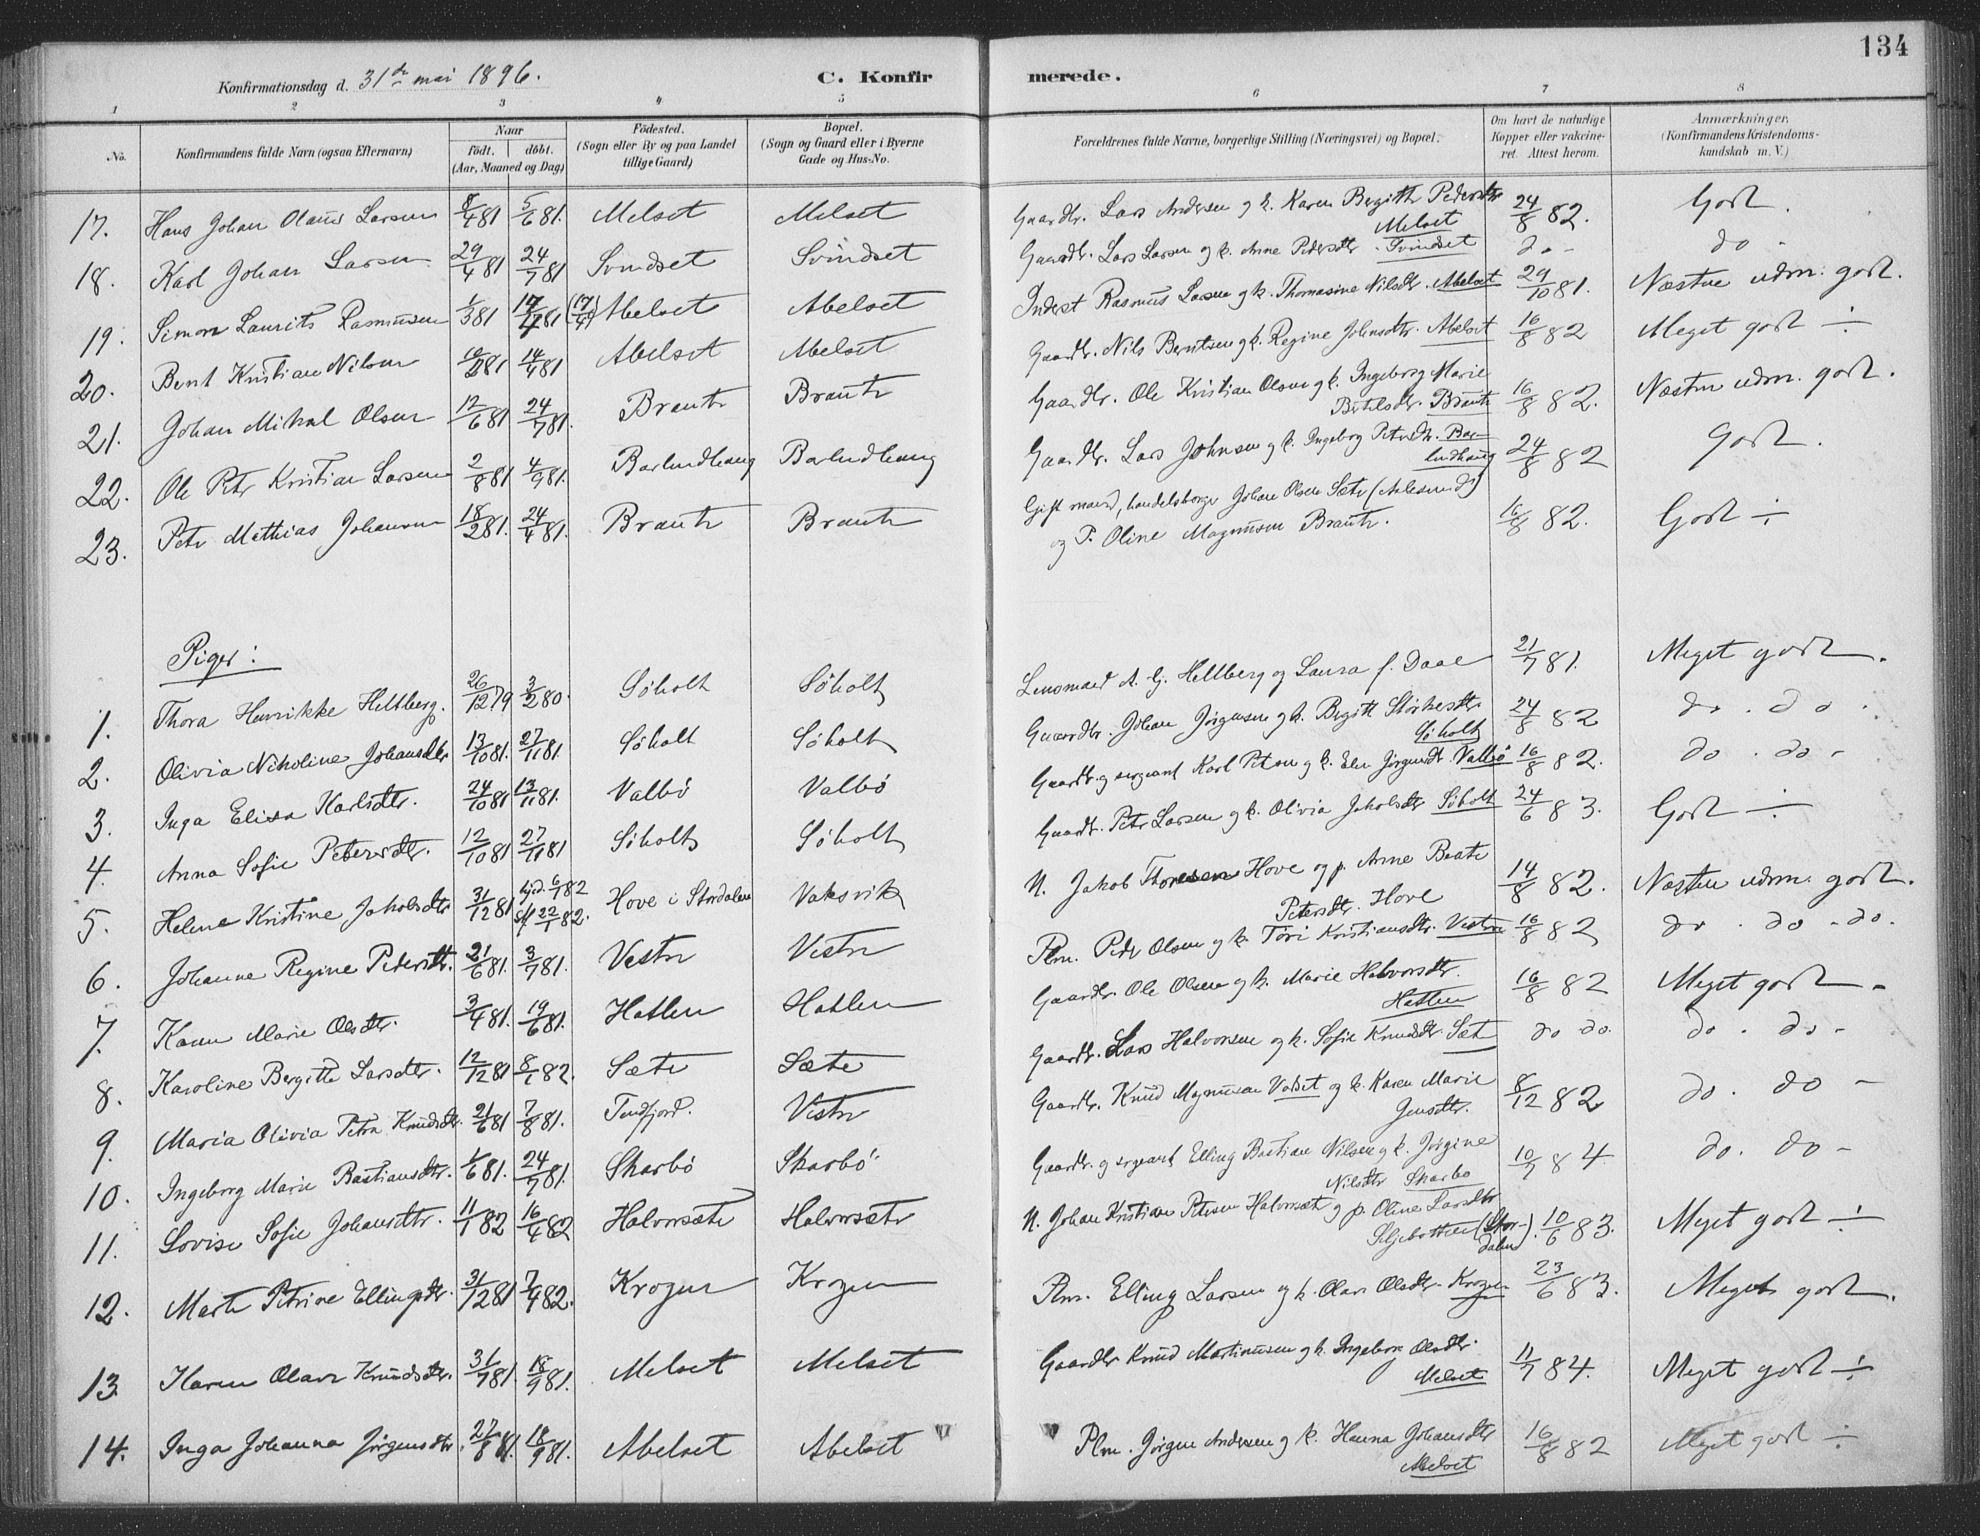 134
Konfirmationsdag d. 31de mai 1896. C. Konfirmerede.
1 2 3 4 5 6 7 8
No. Konfirmandens fulde Navn (ogsaa Efternavn) Naar Födt. döbt. (Aar, Maaned og Dag) Födested. (Sogn eller By og paa Landet tillige Gaard) Bopæl. (Sogn og Gaard eller i Byerne Gade og Hus-No. Forældrenes fulde Navne, borgerlige Stilling (Næringsvei) og Bopæl. Om havt de naturlige Kopper eller vakcineret. Attest herom. Anmærkninger. (Konfirmandens Kristendomskundskab m. V.)
17. Hans Johan Olaus Larsen 8/4 81 5/6 81. Melset Melset Gaardbr. Lars Andersen og k. Karen Bergitte Pedersdtr Melset 24/8 82. Godt.
18. Karl Johan Larsen 29/4 81 24/7 81 Svindset Svindset Gaardbr. Lars Larsen og k. Anne Pedersdtr. Svindset do - do -
19. Simon Laurits Rasmussen 1/3 81 17/4 81 (17/4) Abelset Abelset Inderst Rasmus Larsen og k. Thomasine Nilsdtr. Abelset 29/10 81. Næsten udm. godt.
20. Bent Kristian Nilsen 81 14/4 81 Abelset Abelset Gaardbr. Nils Berntsen og k. Regine Johnsdtr. Abelset 16/8 82 Meget godt ÷
21. Johan Mikal Olsen 12/6 81 24/7 81. Braute Braute Gaardbr. Ole Kristian Olsen og k. Ingeborg Marie Bertelsdtr. Braute 16/8 82. Næsten udm. godt.
22. Ole Petr Kristian Larsen 2/8 81 4/9 81. Barlindhaug Barlindhaug Gaardbr. Lars Johnsen og k. Ingeborg Petersdtr. Barlindhaug 24/8 82 Godt.
23. Petr Mathias Johansen 18/2 81. 24/4 81. Braute Braute Gift mand, handelsborger Johan Olsen Sæte (Aalesund) og P. Oline Magnusen Braute. 16/8 82. Godt ÷
Piger:
1. Thora Henrikke Heltberg. 26/12 79 3/2 80. Söholt Söholt Lensmand A. G. Heltberg og Laura f. Daae 21/7 81. Meget godt.
2. Olivia Nikoline Johansdtr 13/10 81. 27/11 81. Söholt Söholt Gaardbr. Johan Jörgensen og k. Bergitte Störkersdtr. Söholt 24/8 82 do. do.
3. Inga Elisa Karlsdtr. 24/10 81 13/11 81. Valbö Valbö Gaardbr. og sergeant Karl Petersen og k. Elen Jörgensdtr. Valbö 16/8 82. do. do -
4. Anna Sofie Petersdtr. 12/10 81 27/11 81 Söholt Söholt Gaardbr. Petr Larsen og k. Olivia Jakobsdtr Söholt 24/6 83. Godt ÷
5. Helene Kristine Jakobsdtr 31/12 81 hjd. 6/1 82 st 22/1 82. Hove i Stordalen Vaksvik N. Jakob Thoresen Hove og p. Anne Beate Petersdtr. Hove 14/8 82. Næsten udm. godt.
6. Johanne Regine Pedersdtr. 21/6 81. 3/7 81. Vestre Vestre Plm. Peder Olsen og k. Töri Kristiansdtr. Vestre 16/8 82 do. do - do.
7. Karen Marie Olsdtr. 3/4 81. 19/6 81. Hatlen Hatlen Gaardbr. Ole Olsen og k. Marie Halvorsdtr. Hatlen 16/8 82 Meget godt -
8. Karoline Bergitte Larsdtr. 12/12 81 8/1 82. Sæte Sæte Gaardbr. Lars Halvorsen og k. Sofie Knudsdtr. Sæte do do. do. do -
9. Maria Olivia Petra Knudsdtr. 21/6 81 7/8 81. Tendfjord. Vestre Gaardbr. Knud Magnusen Valset og k. Karen Marie Jensdtr. 8/12 82 do. do -
10. Ingeborg Marie Bastiansdtr. 1/6 81. 24/7 81. Skarbö Skarbö Gaardbr. og sergeant Elling Bastian Nilsen og k. Jörgine Nilsdtr Skarbö 10/7 84 do. do -
11. Lovise Sofie Johansdtr. 11/1 82 16/4 82 Halvorsæte Halvorsæte N. Johan Kristian Petersen Halvorsæte og p. Oline Larsdtr Seljebotten (Stordalen). 10/6 83. Meget godt ÷
12. Marte Petrine Ellingsdtr. 31/12 81 7/4 82. Krogen Krogen Plm. Elling Larsen og k. Olave Olsdtr. Krogen 23/6 83. Meget godt.
13. Karen Olave Knudsdtr. 31/7 81. 18/9 81. Melset Melset Gaardbr Knud Martinusen og k. Ingeborg Olsdtr. Melset 11/7 84. Meget godt ÷
14. Inga Johanna Jörgensdtr. 27/8 81. 18/9 81. Abelset Abelset Plm. Jörgen Andersen og k. Hanna Johansdtr Abelset 16/8 82 Meget godt ÷